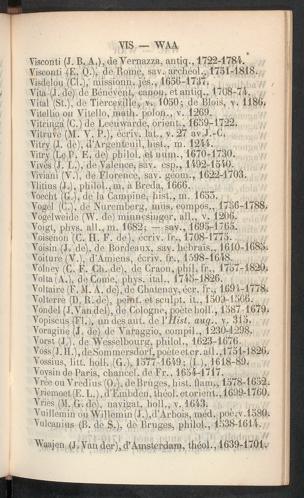 VIS — WAA
Visconti (J. B. A.), de Vernazza, antiq., 1722-1784.
Visconti (E. Q.), de Rome, sav. archéol., 1751-1818.
Visdelou (Cl.), missionn. jés., 1656-1737.
Vita (J. de) de Bénévent, canon. et antiq., 1708-74.
Vital (St.), de Tierceville, v. 1050; de Blois, v. 1186.
Vitelho ou Vitello, math. polon., v. 1269.
Vitringa (C.) de Leeuwarde, orient., 1659-1722.
Vitruve (M. V. P.), écriv. lat., v. 27 av. J.-C.
Vitry (J. de), d'Argenteuil, hist., m. 1244.
Vitry (Le P. E. de) philol. et num., 1670-1730.
Vivès (J. L.), de Valence, sav. esp., 1492-1540.
Viviani (V.), de Florence, sav. géom., 1622-1703.
Vlitius (J.), philol., m. à Breda, 1666.
Voecht (G.), de la Campine, hist., m. 1653.
Vogel (C.), de Nuremberg, mus. compos., 1756-1788.
Vogelweide (W. de) minnesinger, all., v. 1206.
Voigt, phys. all., m. 1682; — sav., 1695-1765.
Voisenon (C. H. F. de), écriv. fr., 1708-1775.
Voisin (J. de), de Bordeaux, sav. hébrais., 1610-1685.
Voiture (V.), d'Amiens, écriv. fr., 1598-1648.
Volney (C. F. Ch. de), de Craon, phil. fr., 1757-1820.
Volta (A.), de Côme, phys. ital., 1745-1826.
Voltaire (F. M. A. de), de Chatenay, écr. fr., 1694-1778.
Volterre (D. R. de), peint. et sculpt. it., 1509-1566.
Vondel (J. Van del), de Cologne, poète holl., 1587-1679.
Vopiscus (Fl.), un des aut. de l'Hist. aug., v. 315.
Voragine (J. de) de Varaggio, compil., 1230-1298.
Vorst (J.), de Wesselbourg, philol., 1623-1676.
Voss (J. H.), de Sommersdorf, poète et cr. all., 1751-1826.
Vossius, litt. holl. (G.), 1577-1649; (I.), 1618-89.
Voysin de Paris, chancel. de Fr., 1654-1717.
Vrée ou Vredius (O.), de Bruges, hist. flam., 1578-1652.
Vriemoet (E. L.), d'Embden, théol. et orient., 1699-1760.
Vries (M. G. de), navigat. holl., v. 1643.
Vuillemin ou Willemin (J.), d'Arbois, méd. poè. v. 1580.
Vulcanius (B. de S.), de Bruges, philol., 1538-1614.
Waajen (J. Van der), d'Amsterdam, théol., 1639-1701.